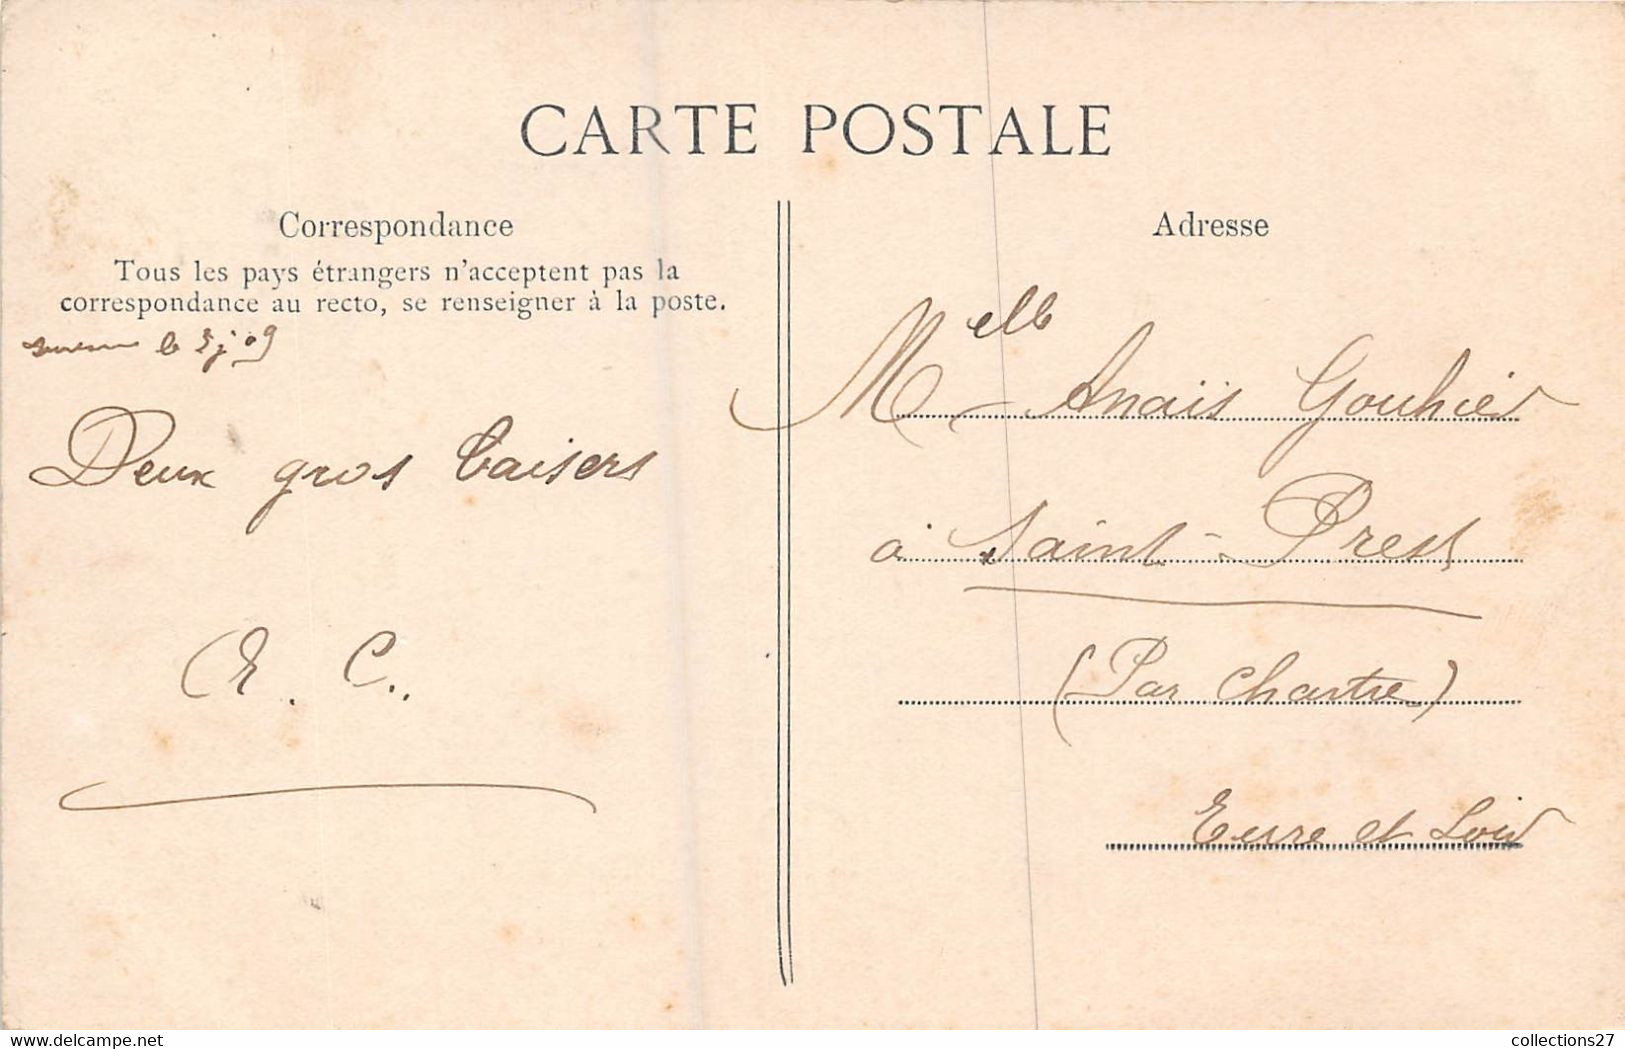 CARTE POSTALE
Correspondance
Tous les pays étrangers n'acceptent pas la
correspondance au recto, se renseigner à la poste.
le 09
Deux gros baisers
E. C..
Adresse
Melle Anaïs Gouhier
à Saint-Prest
(Par Chartre)
Eure et Loir
www.delcampe.net
collections27